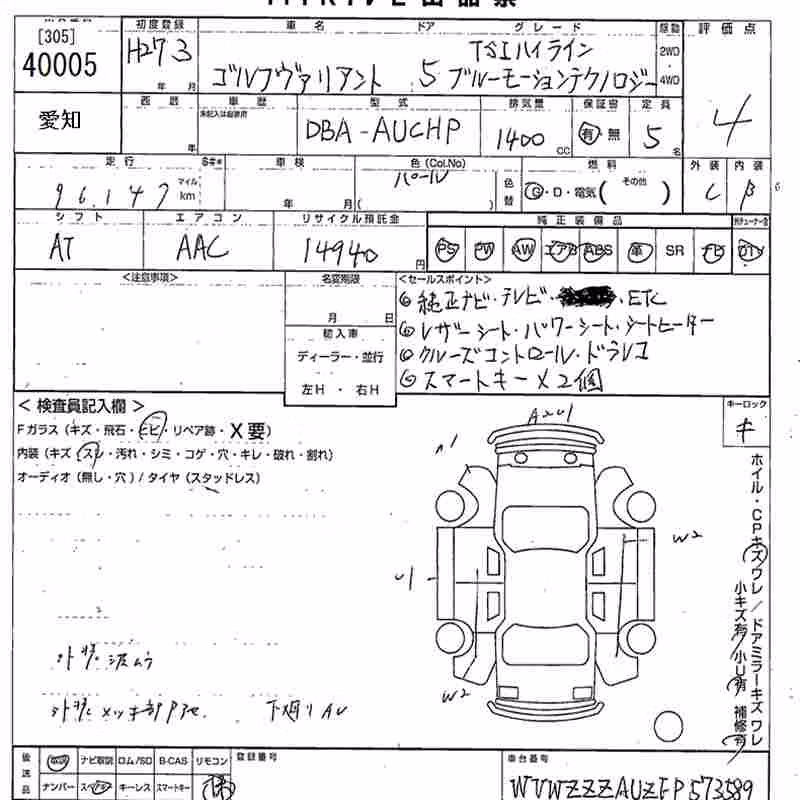 [305]
40005
初度登録
H27 3
年 月
車名 ドア グレード
ゴルフヴァリアント 5 TSIハイライン
ブルーモーションテクノロジー
駆動
2WD
・
4WD
評価点
4
愛知
西暦
年
車歴
未記入は自家用
型式
DBA-AUCHP
排気量
1400 cc
保証書
有・無
定員
5 名
走行
96,147 マイル km
車検
年 月
色(Col.No)
パール
( )
色替
燃料
G・D・電気( その他 )
外装
C
内装
B
シフト
AT
エアコン
AAC
リサイクル預託金
14940 円
純正装備品
PS PW AW エアB ABS 革 SR ナビ DTV
<注意事項>
名変期限
月 日
輸入車
ディーラー・並行
左H・右H
<セールスポイント>
◎純正ナビ・テレビ・ ・ETC
◎レザーシート・パワーシート・シートヒーター
◎クルーズコントロール・ドラレコ
◎スマートキー×2個
<検査員記入欄>
Fガラス(キズ・飛石・ヒビ・リペア跡・X要)
内装(キズ・スレ・汚れ・シミ・コゲ・穴・キレ・破れ・割れ)
オーディオ(無し・穴)/タイヤ(スタッドレス)
A2U1
U1
W2
W2
キーロック
キ
ホイル・CPキズワレ/ドアミラーキズワレ
小キズ有 小U有 補修有
下廻りAU
後送品
取説 ナビ取説 ロム/SD B-CAS リモコン
ナンバー スペアキー キーレス スマートキー
登録番号
車台番号
WVWZZZAUZFP573589